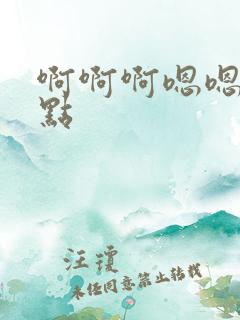 啊啊啊嗯嗯
點
汪瓊
未经同意禁止转载